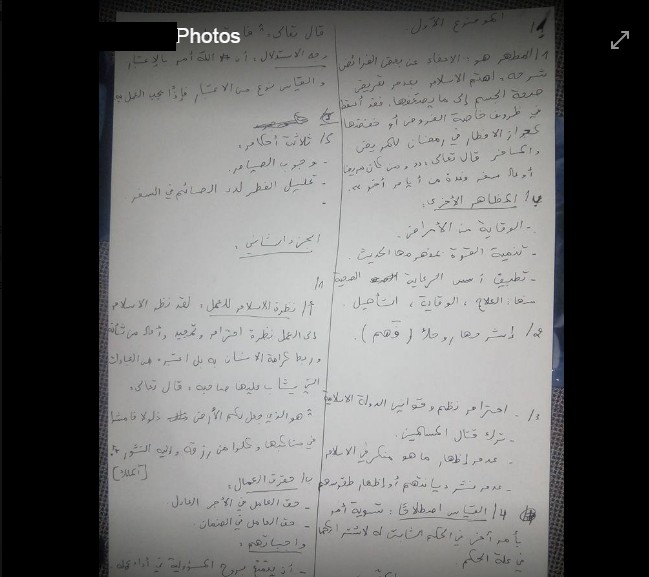 Photos
الموضوع الأول:
1/ المظهر هو: الإعفاء عن بعض الفرائض
شرحه: اهتم الإسلام بعدم تعريض
صحة الجسم إلى ما يضعفها. فقد أسقط
في ظروف خاصة الفروض أو خففها
كجواز الإفطار في رمضان للمريض
والمسافر قال تعالى: "ومن كان مريضا
أو على سفر فعدة من أيام أخر".
ب/ المظاهر الأخرى:
- الوقاية من الأمراض.
- تنمية القوة بمفهومها الحديث.
- تطبيق أسس الرعاية الصحية
منها: العلاج، الوقاية، التأهيل.
2/
- احترام نظم وقوانين الدولة الإسلامية
- ترك قتال المسلمين.
- عدم إظهار ما هو منكر في الإسلام
- عدم نشر ديانتهم أو إظهار طقوسهم
4/ القياس اصطلاحا: تسوية أمر
بأمر آخر في الحكم الثابت له لاشتراكهما
في علة الحكم.
قال تعالى:
وجه الاستدلال: أن الله أمر بالاعتبار
والقياس نوع من الاعتبار فإذا يجب العمل به
5/ ثلاثة أحكام:
- وجوب الصيام.
- تحليل الفطر لدى الصائم في السفر.
-
الجزء الثاني:
1/
أ/ نظرة الإسلام للعمل: لقد نظر الإسلام
إلى العمل نظرة احترام وتمجيد وأعلى من شأنه
وربط كرامة الإنسان به بل اعتبره من العبادات
التي يثاب عليها صاحبه، قال تعالى:
"هو الذي جعل لكم الأرض ذلولا فامشوا
في مناكبها وكلوا من رزقه وإليه النشور".
[الملك]
ب/ حقوق العمال:
- حق العامل في الأجر العادل.
- حق العامل في الضمان
واجباتهم:
- أن يتمتع بروح المسؤولية في أداء عمله